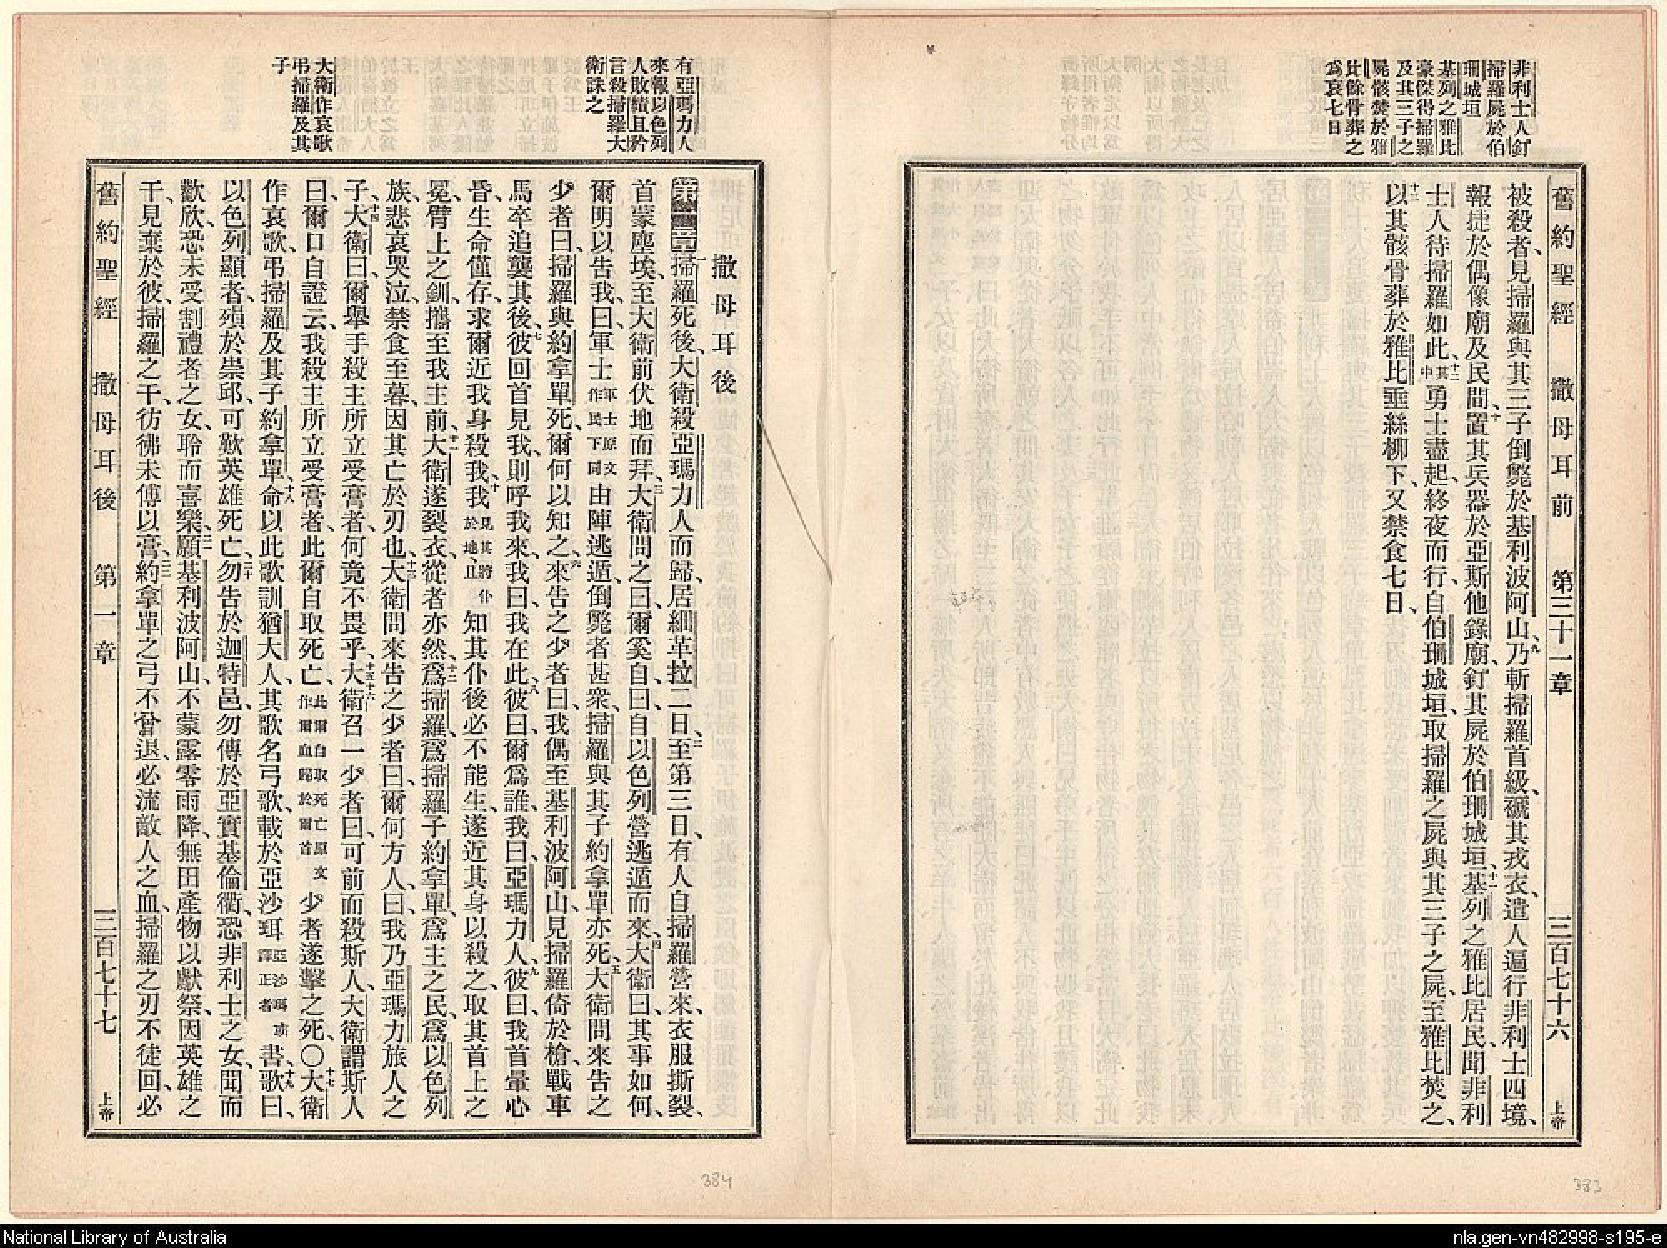 非利士人釘
掃羅屍於伯
珊城垣
基列之雅比
豪傑得掃羅
及其三子之
屍骸焚於雅
比餘骨葬之
爲哀七日
舊約聖經 撒母耳前 第三十一章 三百七十六 上帝
被殺者、見掃羅與其三子倒斃於基利波阿山、九乃斬掃羅首級、褫其戎衣、遣人遍行非利士四境、
報捷於偶像廟及民間、十置其兵器於亞斯他錄廟、釘其屍於伯珊城垣、十一基列之雅比居民、聞非利
士人待掃羅如此、十二其中勇士盡起、終夜而行、自伯珊城垣、取掃羅之屍、與其三子之屍、至雅比焚之、
十三以其骸骨葬於雅比垂絲柳下、又禁食七日、
383
有亞瑪力人
來報以色列
人敗績且矜
言殺掃羅大
衛誅之
大衛作哀歌
弔掃羅及其
子
撒母耳後
第一章一掃羅死後、大衛殺亞瑪力人而歸、居細革拉二日、二至第三日、有人自掃羅營來、衣服撕裂、
首蒙塵埃、至大衛前、伏地而拜、三大衛問之曰、爾奚自、曰、自以色列營逃遁而來、四大衛曰、其事如何、
爾明以告我、曰、軍士軍士原文作民下同由陣逃遁、倒斃者甚衆、掃羅與其子約拿單亦死、五大衛問來告之
少者曰、掃羅與約拿單死、爾何以知之、六來告之少者曰、我偶至基利波阿山、見掃羅倚於槍、戰車
馬卒追襲其後、七彼回首見我、則呼我來、我曰、我在此、八彼曰、爾爲誰、我曰、亞瑪力人、九彼曰、我首暈心
昏、生命僅存、求爾近我身殺我、十我見其將仆於地止知其仆後必不能生、遂近其身以殺之、取其首上之
冕、臂上之釧、攜至我主前、十一大衛遂裂衣、從者亦然、十二爲掃羅、爲掃羅子約拿單、爲主之民、爲以色列
族、悲哀哭泣、禁食至暮、因其亡於刃也、十三大衛問來告之少者曰、爾何方人、曰、我乃亞瑪力旅人之
子、十四大衛曰、爾舉手殺主所立受膏者、何竟不畏乎、十五十六大衛召一少者曰、可前而殺斯人、大衛謂斯人
曰、爾口自證云、我殺主所立受膏者、此爾自取死亡、此爾自取死亡原文作爾血歸於爾首少者遂擊之死、〇十七大衛
作哀歌、弔掃羅及其子約拿單、十八命以此歌訓猶大人、其歌名弓歌、載於亞沙珥書、歌曰、十九
以色列顯者、殞於崇邱、可歎英雄死亡、二十勿告於迦特邑、勿傳於亞實基倫衢、恐非利士之女、聞而
歡欣、恐未受割禮者之女、聆而喜樂、二一願基利波阿山、不蒙露零雨降、無田產物以獻祭、因英雄之
干、見棄於彼、掃羅之干、彷彿未傅以膏、二二約拿單之弓不曾退、必流敵人之血、掃羅之刃不徒回、必
舊約聖經 撒母耳後 第一章 三百七十七 上帝
384
National Library of Australia
nla.gen-vn482998-s195-e